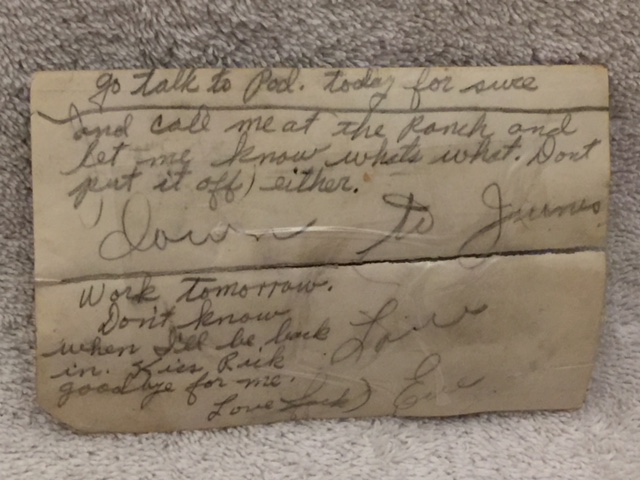 go talk to Pod. today for sure
and call me at the Ranch and
let me know whats what. Dont
put it off) either.
down to Junes
Work tomorrow.
Don't know
when I'll be back
in. Kiss Rick
goodbye for me.
Love